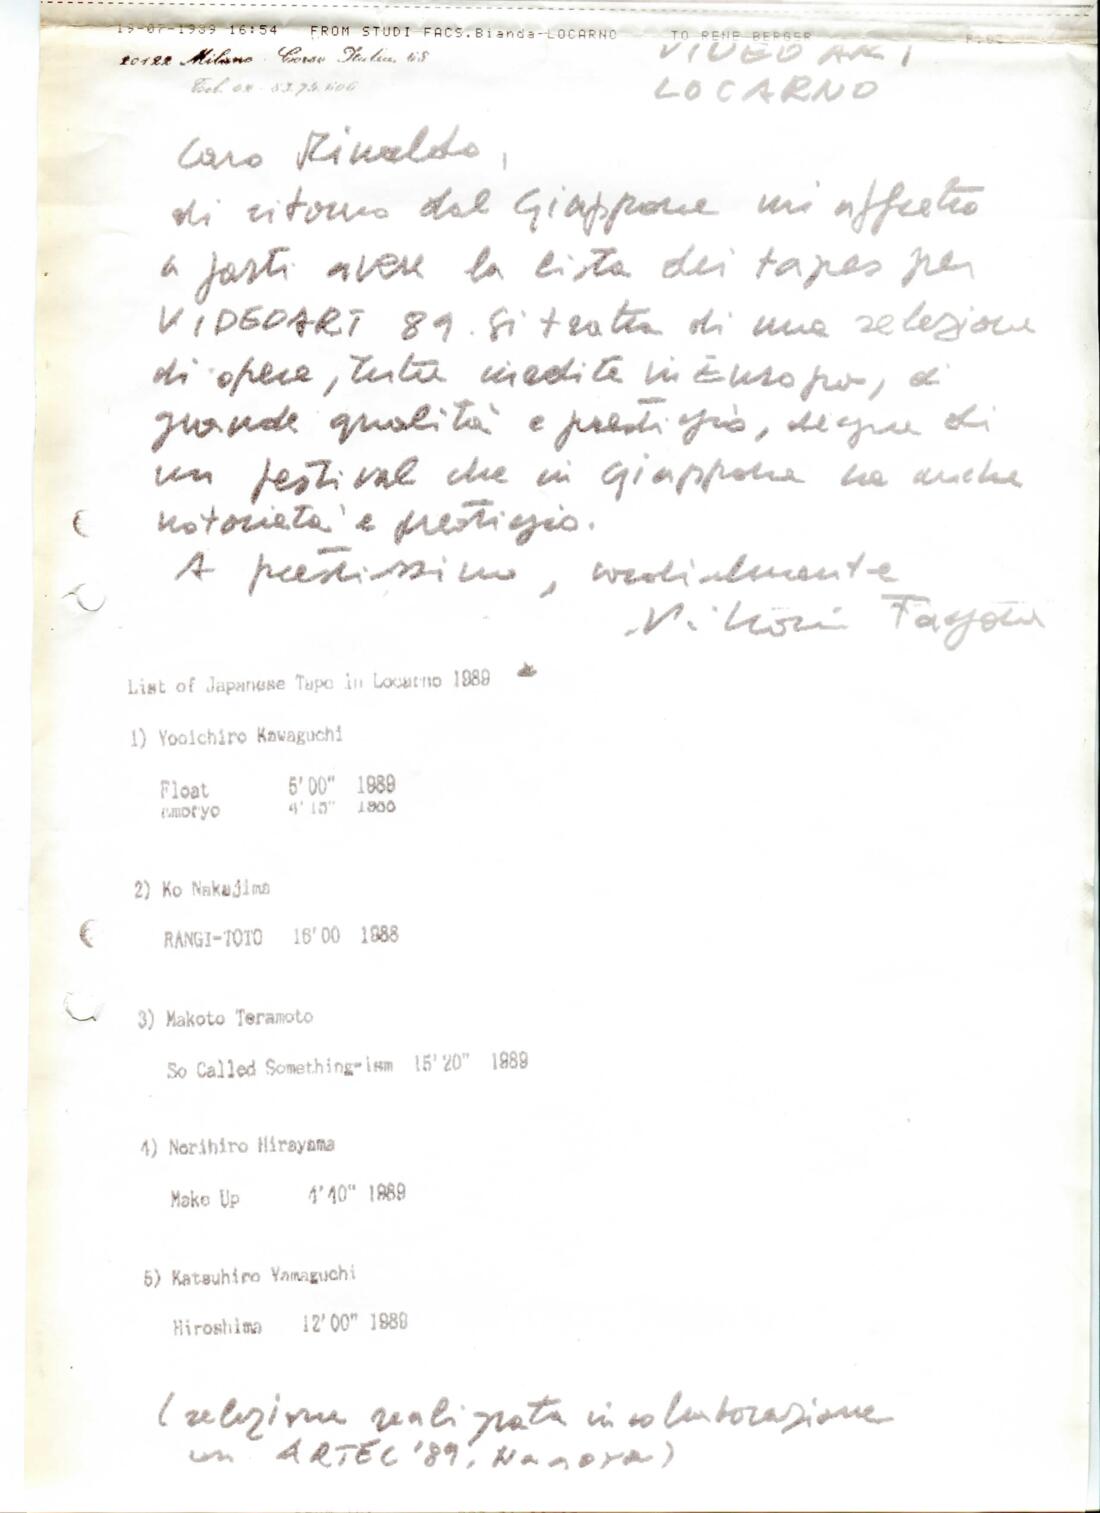 19-07-1989 16:54 FROM STUDI FACS.Bianda-LOCARNO TO RENE BERGER
20122 Milano - Corso Italia, 68
VIDEOART
LOCARNO
Caro Rinaldo,
di ritorno dal Giappone mi affretto
a farti avere la lista dei tapes per
VIDEOART 89. Si tratta di una selezione
di opere, tutte inedite in Europa, di
grande qualità e prestigio, degne di
un festival che in Giappone ha anche
notorietà e prestigio.
A prestissimo, cordialmente
Vittorio Fagone
List of Japanese Tape in Locarno 1989
1) Yooichiro Kawaguchi
Float 5'00" 1989
2) Ko Nakajima
RANGI-TOTO 16'00 1988
3) Makoto Teramoto
So Called Something-ism 15'20" 1989
4) Norihiro Hirayama
Make Up 4'40" 1989
5) Katsuhiro Yamaguchi
Hiroshima 12'00" 1989
(selezione realizzata in collaborazione
con ARTEC '89, Nagoya)